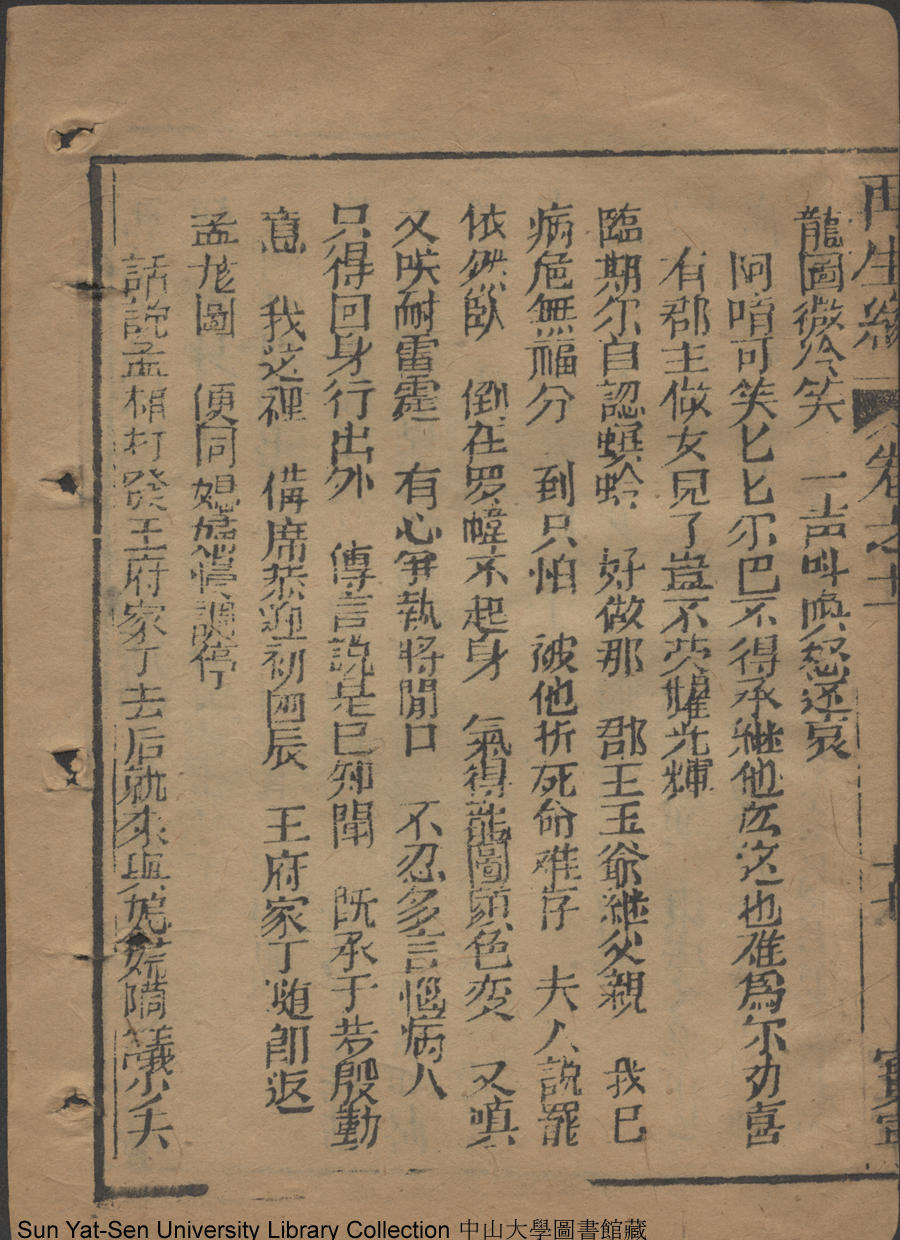 再生緣 卷之十 十六 寶寧
龍圖微冷笑 一声叫喚怒还哀
阿唷可笑匕匕尔巴不得承継他広这也难為尔刃喜
有郡主做女兒了豈不荣耀光輝
臨期尔自認螟蛉 好做那 郡王玉爺継父親 我已
病危無福分 到只怕 被他折死命难存 夫人說罷
依然臥 倒在罗幃不起身 氣得龍圖顔色变 又嗔
又咲耐雷霆 有心争執將閒口 不忍多言惱病人
只得回身行出外 傳言說是已知聞 既承于步殷勤
意 我这裡 備席恭迎初四辰 王府家丁随卽返
孟龙圖 便同媳婦慢調停
話說孟相打發王府家丁去后就來與媳婦啇議少夫
Sun Yat-Sen University Library Collection 中山大學圖書館藏